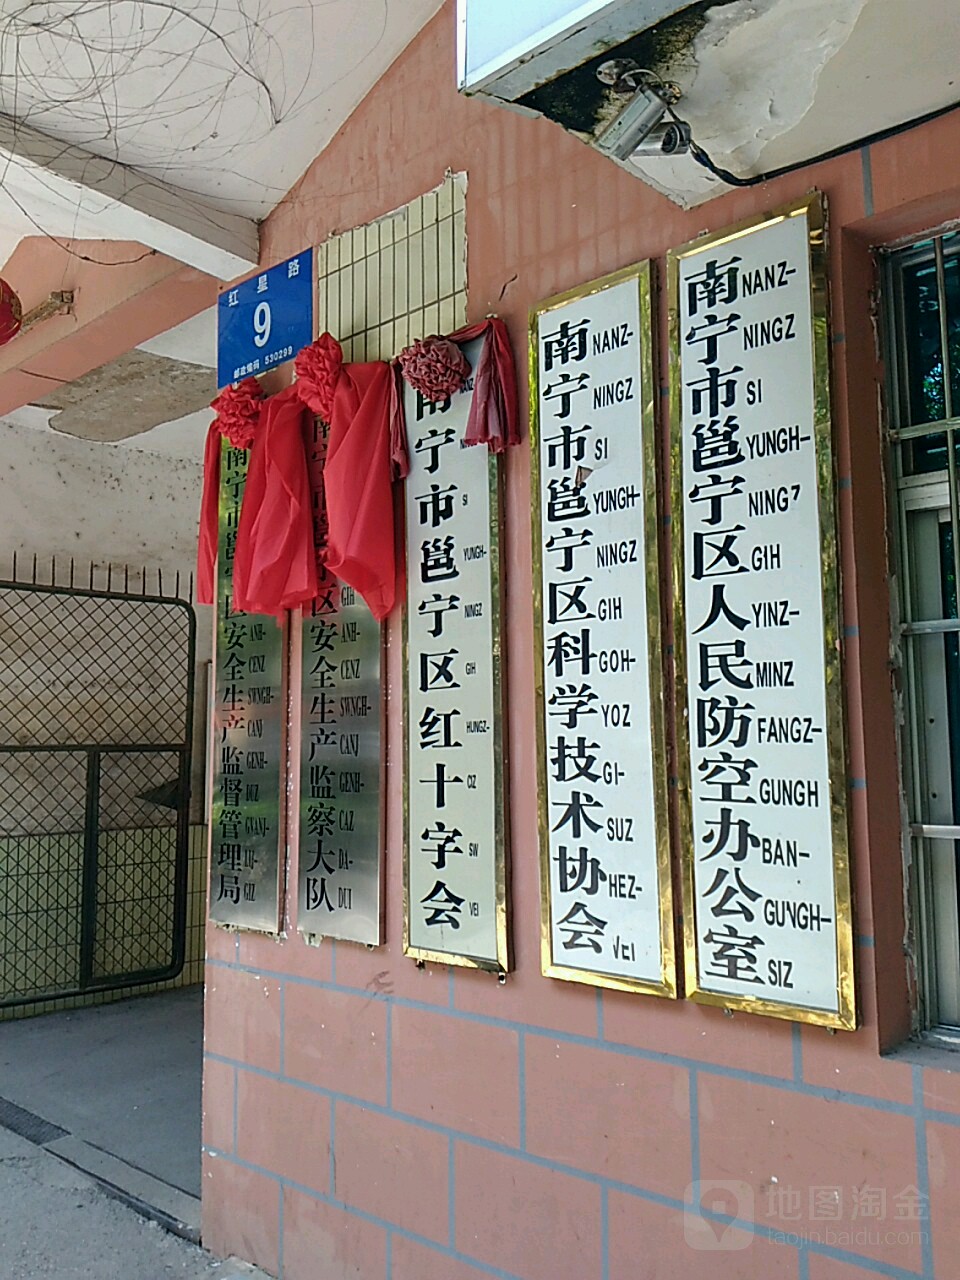 红星路
9
邮政编码 530299
南宁市邕宁区安全生产监督管理局
ANH-
CENZ
SWNGH-
CANJ
GENH-
DUZ
GVANJ-
LIJ-
GIZ
南宁市邕宁区安全生产监察大队
GIH
ANH-
CENZ
SWNGH-
CANJ
GENH-
CAZ
DA-
DUI
南宁市邕宁区红十字会
NANZ
SI
YUNGH-
NINGZ
GIH
HUNGZ-
CIZ
SW
VEI
南宁市邕宁区科学技术协会
NANZ-
NINGZ
SI
YUNGH-
NINGZ
GIH
GOH-
YOZ
GI-
SUZ
HEZ-
VEI
南宁市邕宁区人民防空办公室
NANZ-
NINGZ
SI
YUNGH-
NINGZ
GIH
YINZ-
MINZ
FANGZ-
GUNGH
BAN-
GUNGH-
SIZ
地图淘金
taojin.baidu.com